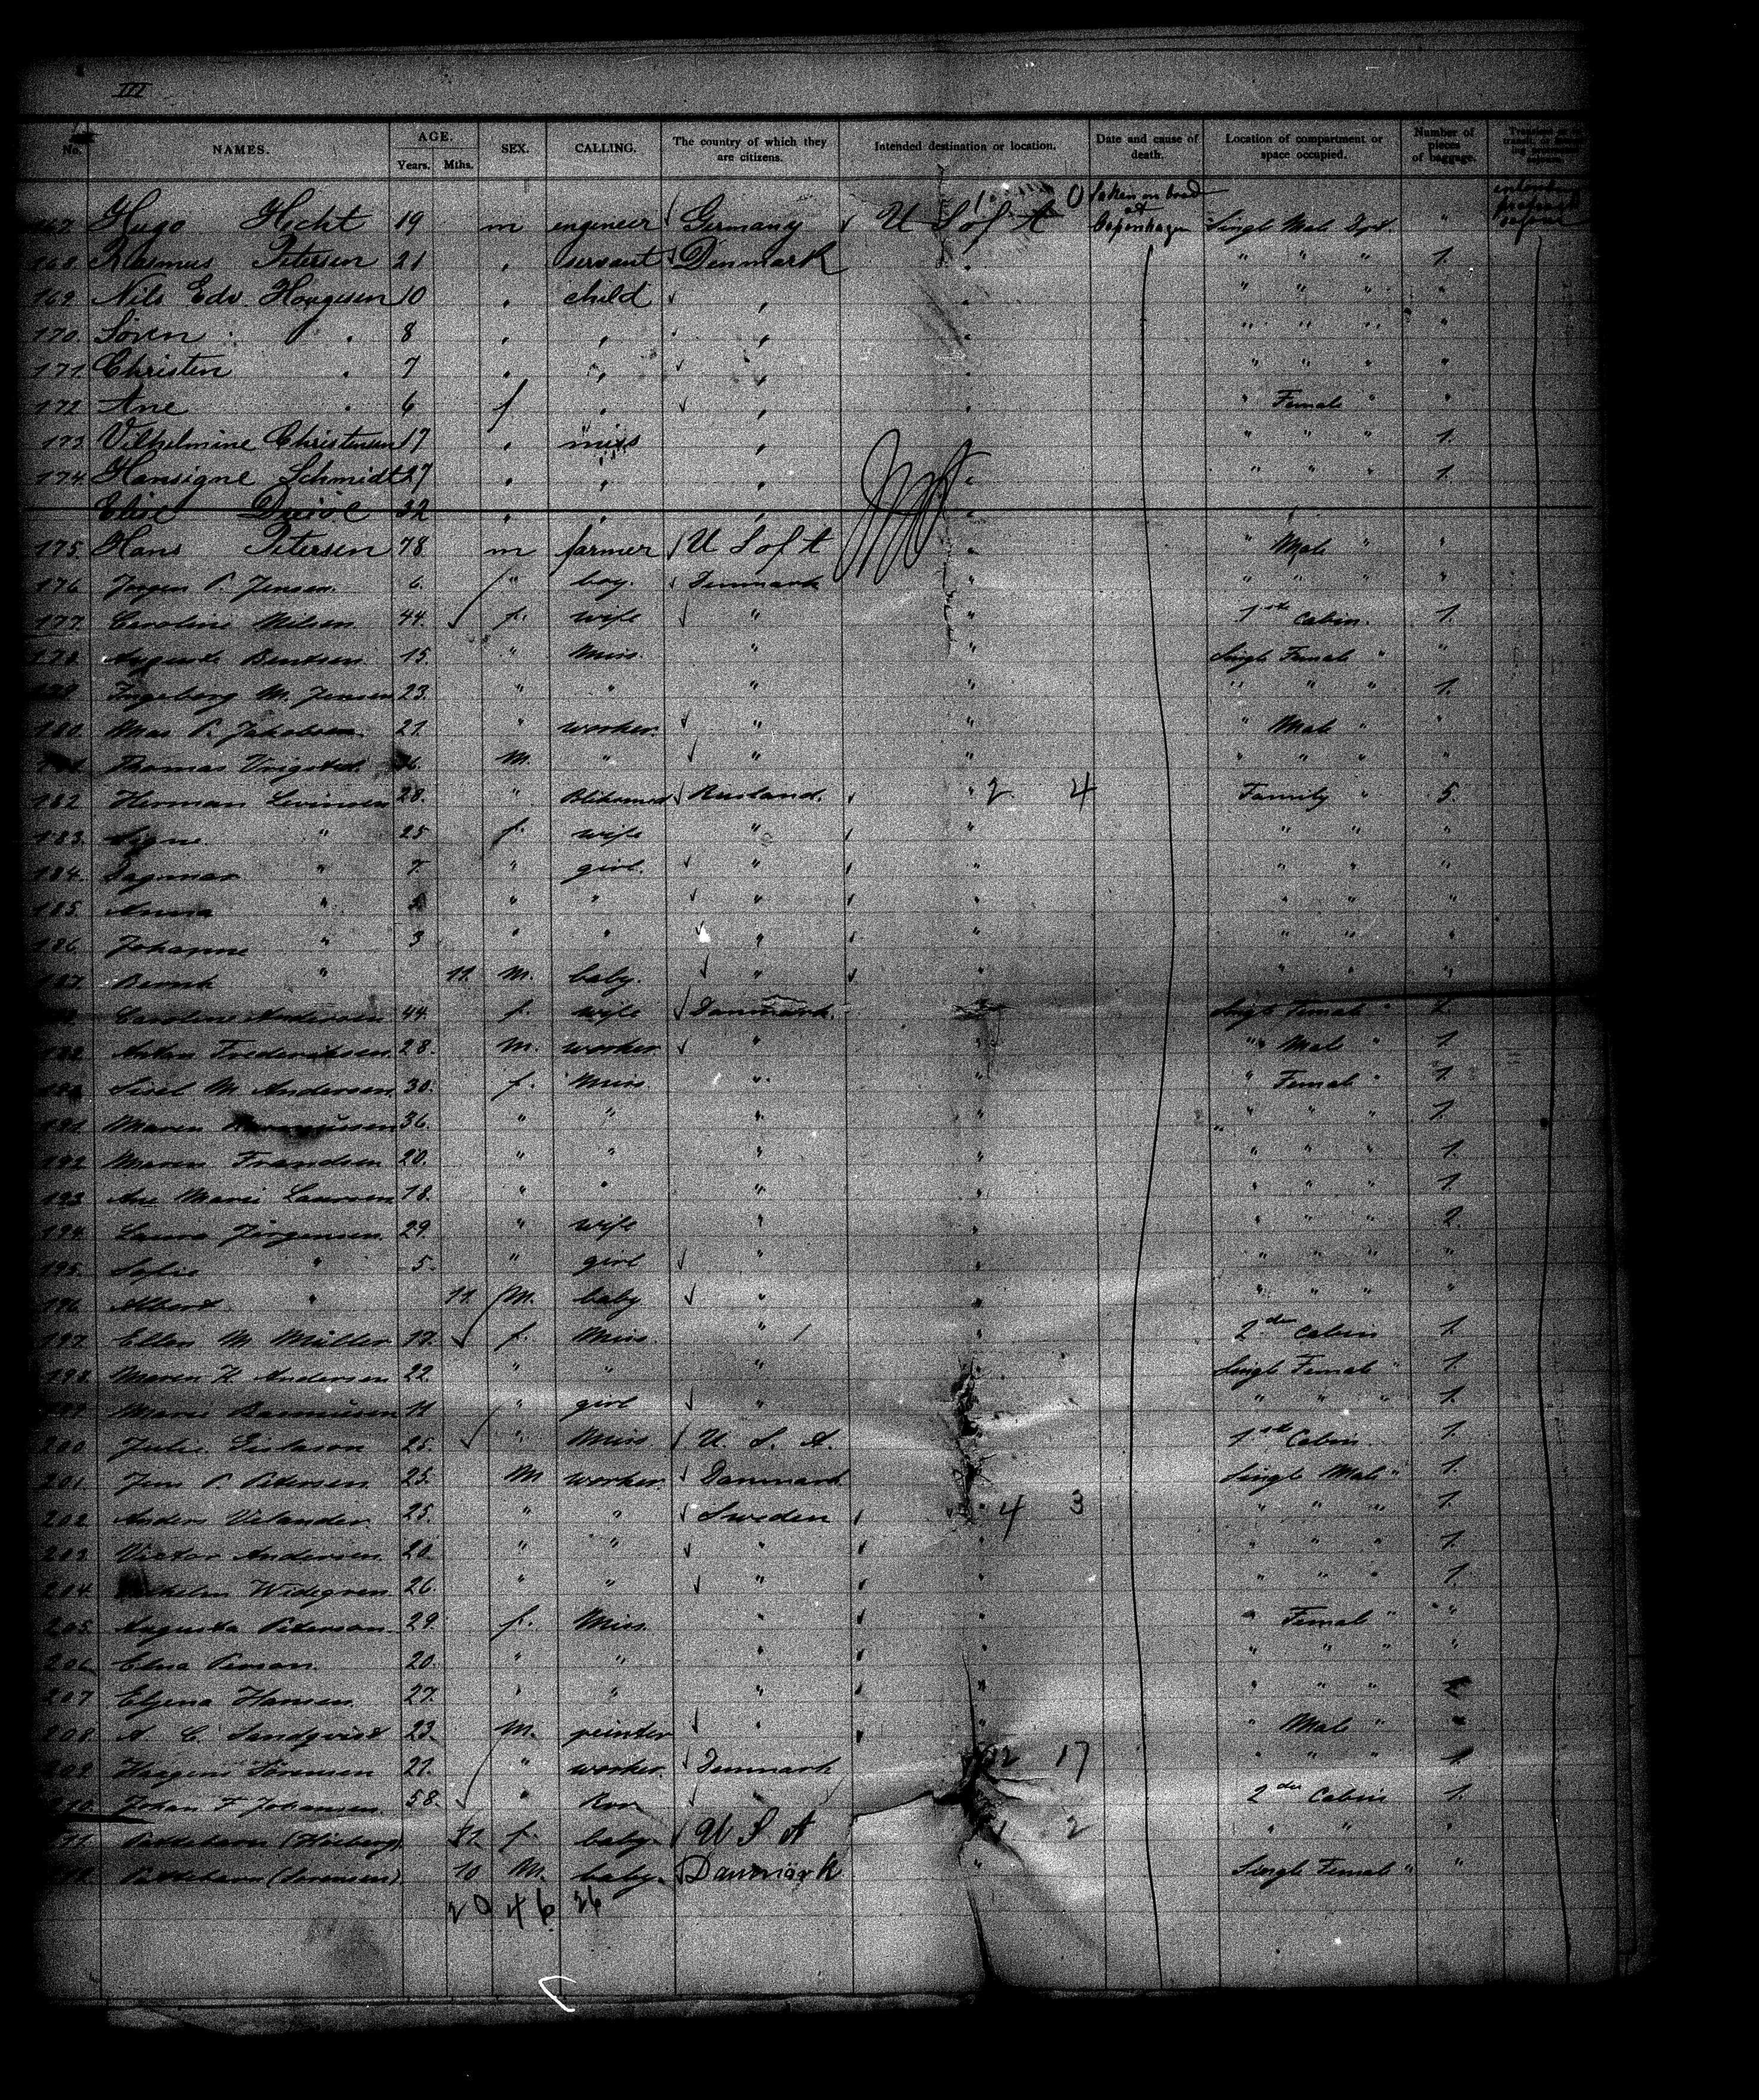 III
No. NAMES. AGE. Years. Mths. SEX. CALLING. The country of which they are citizens. Intended destination or location. Date and cause of death. Location of compartment or space occupied. Number of pieces of baggage.
167. Hugo Hecht 19 m engineer Germany U S of A 0 taken on board at Copenhagen Single Male Dpt. "
168. Rasmus Petersen 21 " servant Denmark " " " " 1.
169. Nils Edv Haugesen 10 " child " " " " " "
170. Sören " 8 " " " " " " " "
171. Christen " 7 " " " " " " " "
172. Ane " 6 f " " " " Female " "
173. Vilhelmine Christensen 17 " miss " " " " " 1.
174. Hansigne Schmidt 27 " " " " " " " 1.
32 " " " "
175. Hans Petersen 78 m farmer U S of A " " Male " "
176. Jörgen P. Jensen 6. " boy. Denmark " " " " "
177. Caroline Nilsen 44. f. wife " " 1ste Cabin. 1.
178. Auguste Bentsen 15. " Miss. " " Single Female " "
179. Ingeborg M. Jensen 23. " " " " " " " 1.
180. Mas P. Jakobsen 21. " worker. " " " Male " "
Thomas Vrigsted M. " " " " " " "
182 Herman Levinsen 28. " Rusland. " 2. 4 Family " 5.
183. Signe " 25 f. wife " " " " "
184. Dagmar " 7. " girl. " " " " "
185 Anna " " " " " " " "
186 Johanne " 3 " " " " " " "
187. " 11. M. baby. " " " " "
Caroline Andersen 44. f. wife Danmark. Single Female "
Anton Frederiksen 28. M. worker " " " Male " 1.
Sisel M. Andersen 30. f. Miss " " " Female " 1.
191 Maren Rasmussen 36. " " " " " " " 1.
192 Maren Frandsen 20. " " " " " " " 1.
193 Ane Marie Laursen 18. " " " " " " " 1.
194. Laura Jörgensen. 29. " wife " " " " " 2.
195. Sofie " 5. " girl " " " " " "
196. Albert " 11. M. baby " " " " " "
197. Ellen M Müller 17. f. Miss. " " 2den Cabin 1.
198. Maren K. Andersen 22. " " " " Single Female " 1.
199 Marie Rasmussen 11 " girl " " " " " 1.
200 Julie 25. " Miss U. S. A. " 1ste Cabin. 1.
201 Jens P. Petersen 25. M worker. Danmark " Single Male " 1.
202 Anders Velander 25. " " Sweden " 4 3 " " " 1.
203 Victor Andersen 20. " " " " " " " 1.
204. Vilhelm Widegren 26. " " " " " " " 1.
205 Augusta Peterson 29. f. Miss. " " " Female " "
206. Elna Person. 20. " " " " " " " "
207 Eljena Hansen. 27. " " " " " " "
208. A. C. Sandqvist 23. M. peinter " " " Male "
209. Sörensen 21. " worker. Denmark 17 " " " 1.
210. Johan F. Johansen. 58. " 2den Cabin 1.
Pattebarn 11 f. baby. U S A 2 " " "
Pattebarn (Sörensen) 10 M. baby. Danmark " Single Female " "
20 46 26